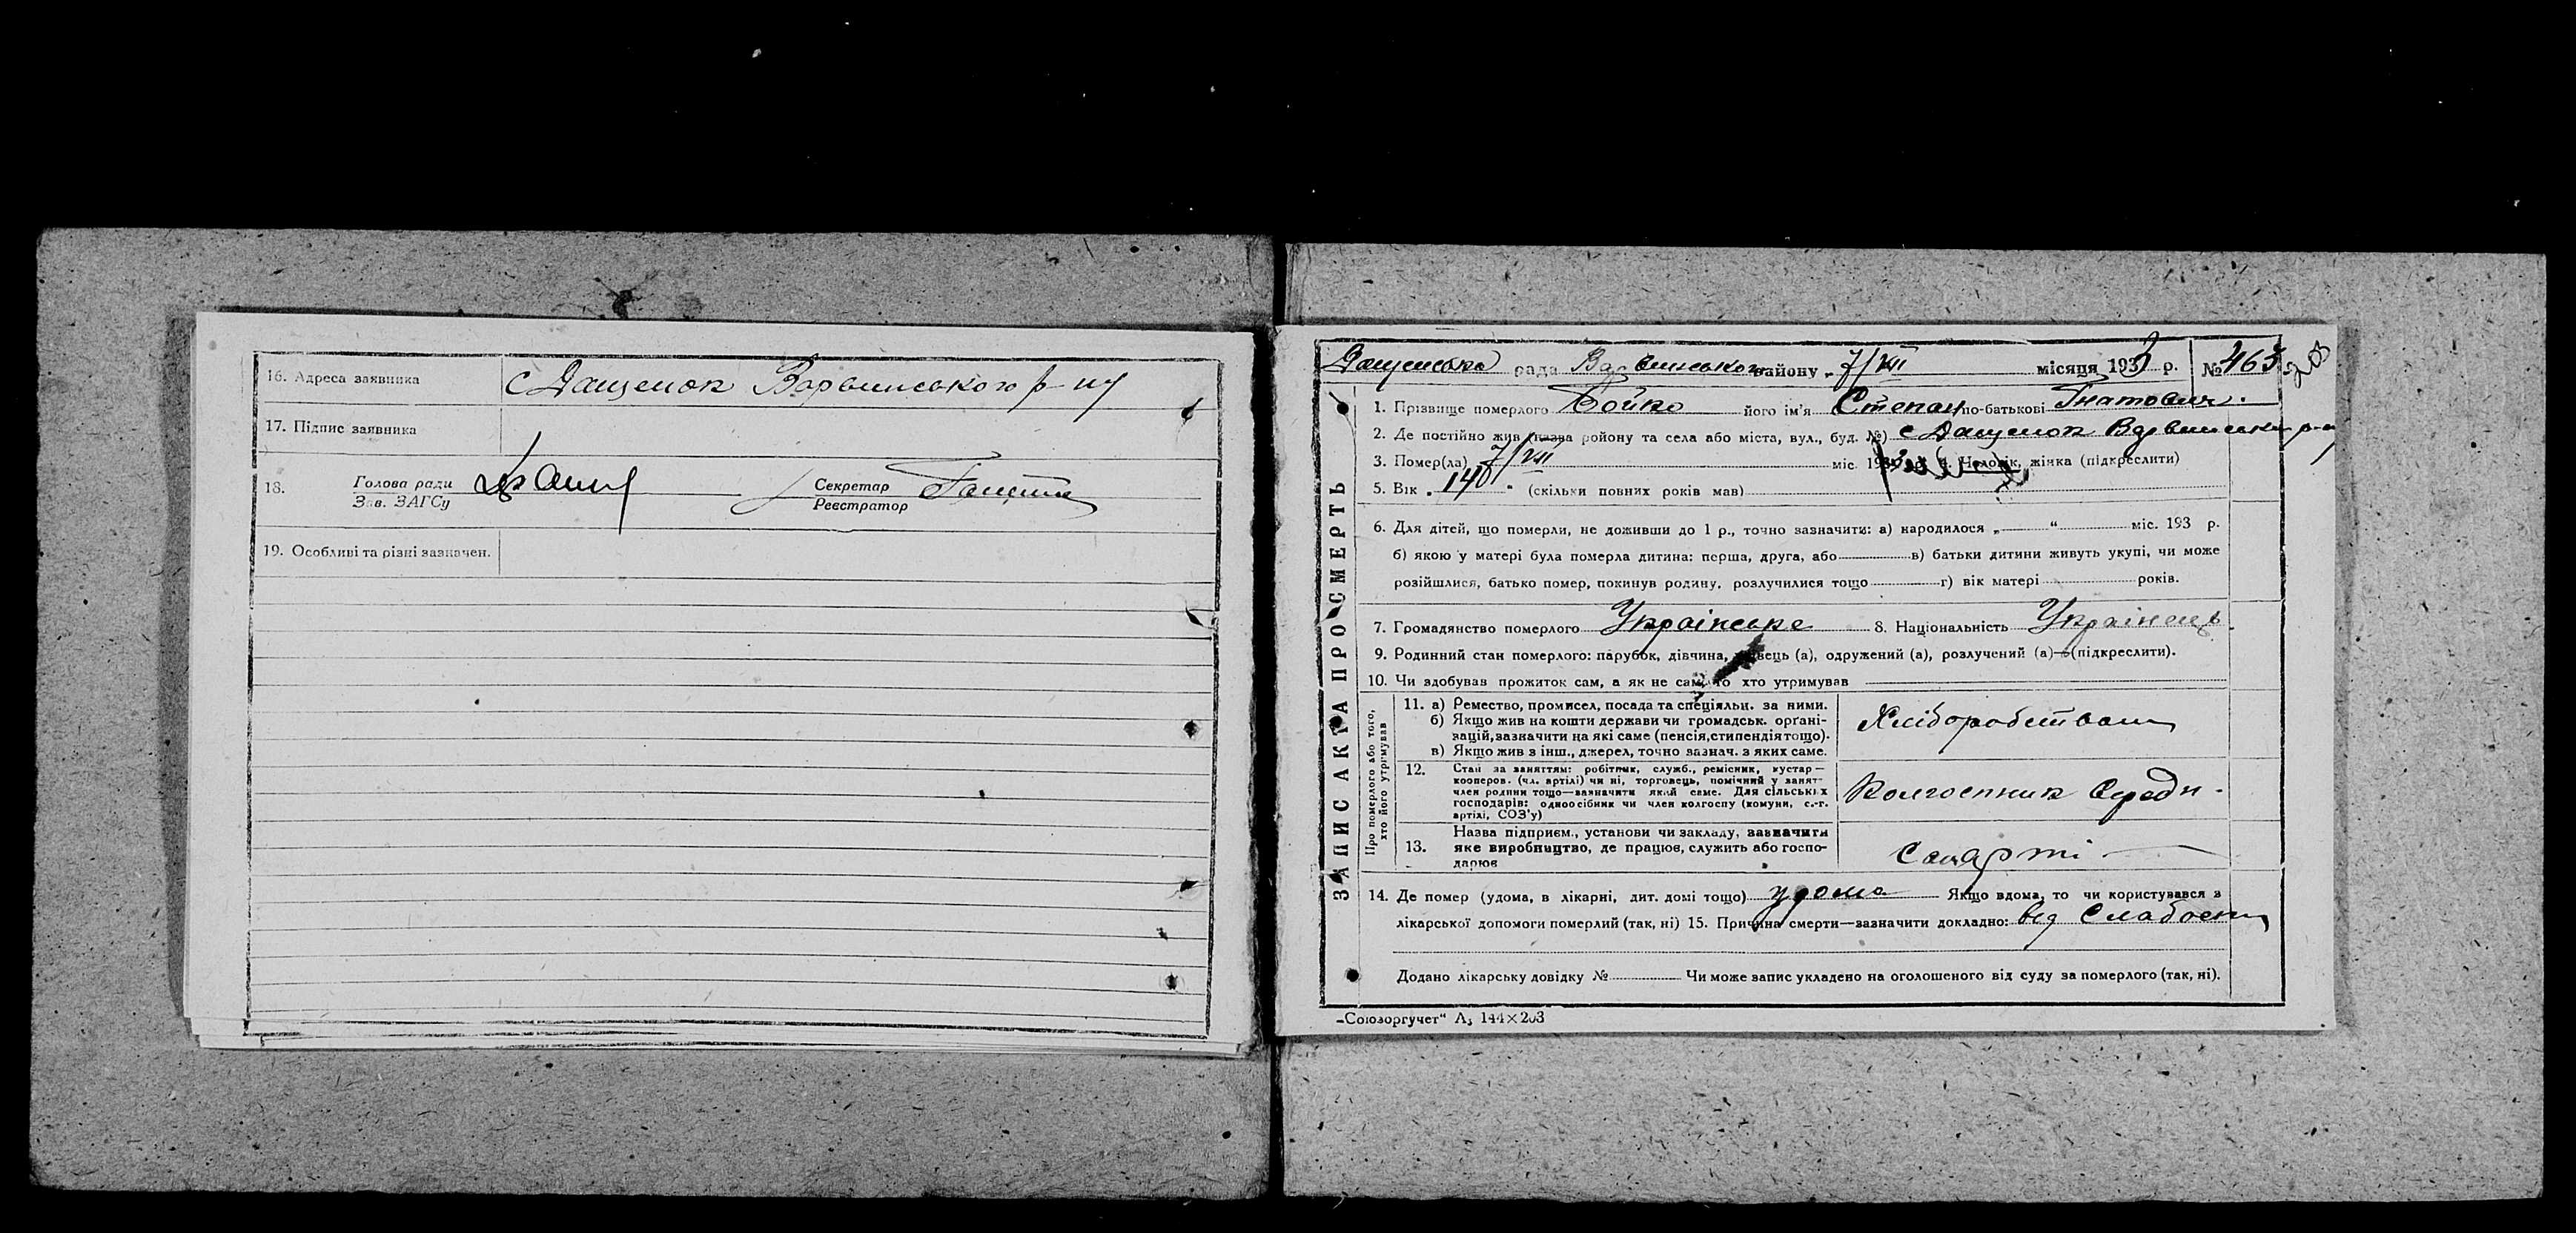 16. Адреса заявника с Дащенок Варвинського р-ну
17. Підпис заявника
18. Голова ради
Зав. ЗАГСу
Секретар
Реєстратор
19. Особливі та різні зазначен.
Дащенська рада Варвинського району „7/VII місяця 1933 р. № 463
203
ЗАПИС АКТА ПРО СМЕРТЬ
1. Прізвище померлого Бойко його ім'я Степан по-батькові Гнатович.
2. Де постійно жив (назва району та села або міста, вул., буд. №) с Дащенок Варвинськ р-н
3. Помер(ла) 7/VII міс. 193 4. Чоловік, жінка (підкреслити)
5. Вік „ 140 " (скільки повних років мав)
6. Для дітей, що померли, не доживши до 1 р., точно зазначити: а) народилося „ " міс. 193 р.
б) якою у матері була померла дитина: перша, друга, або в) батьки дитини живуть укупі, чи може
розійшлися, батько помер, покинув родину, розлучилися тощо г) вік матері років.
7. Громадянство померлого Українське 8. Національність Українець
9. Родинний стан померлого: парубок, дівчина, вдівець (а), одружений (а), розлучений (а)—(підкреслити).
10. Чи здобував прожиток сам, а як не сам, то хто утримував
Про померлого або того, хто його утримував
11. а) Ремество, промисел, посада та спеціяльн. за ними.
б) Якщо жив на кошти держави чи громадськ. орґані-
зацій, зазначити на які саме (пенсія, стипендія тощо).
в) Якщо жив з інш., джерел, точно зазнач. з яких саме.
Хліборобством
12. Стан за заняттям: робітник, служб., ремісник, кустар—
кооперов. (чл. артілі) чи ні, торговець, помічний у занят-
член родини тощо—зазначити який саме. Для сільських
господарів: одноосібник чи член колгоспу (комуни, с.-г.
артілі, СОЗ'у)
Колгоспник Середн.
13. Назва підприєм., установи чи закладу, зазначити
яке виробництво, де працює, служить або госпо-
дарює
14. Де помер (удома, в лікарні, дит. домі тощо) удома Якщо вдома, то чи користувався з
лікарської допомоги померлий (так, ні) 15. Причина смерти—зазначити докладно: від Слабости
Додано лікарську довідку № Чи може запис укладено на оголошеного від суду за померлого (так, ні).
„Союзоргучет" А₅ 144×203